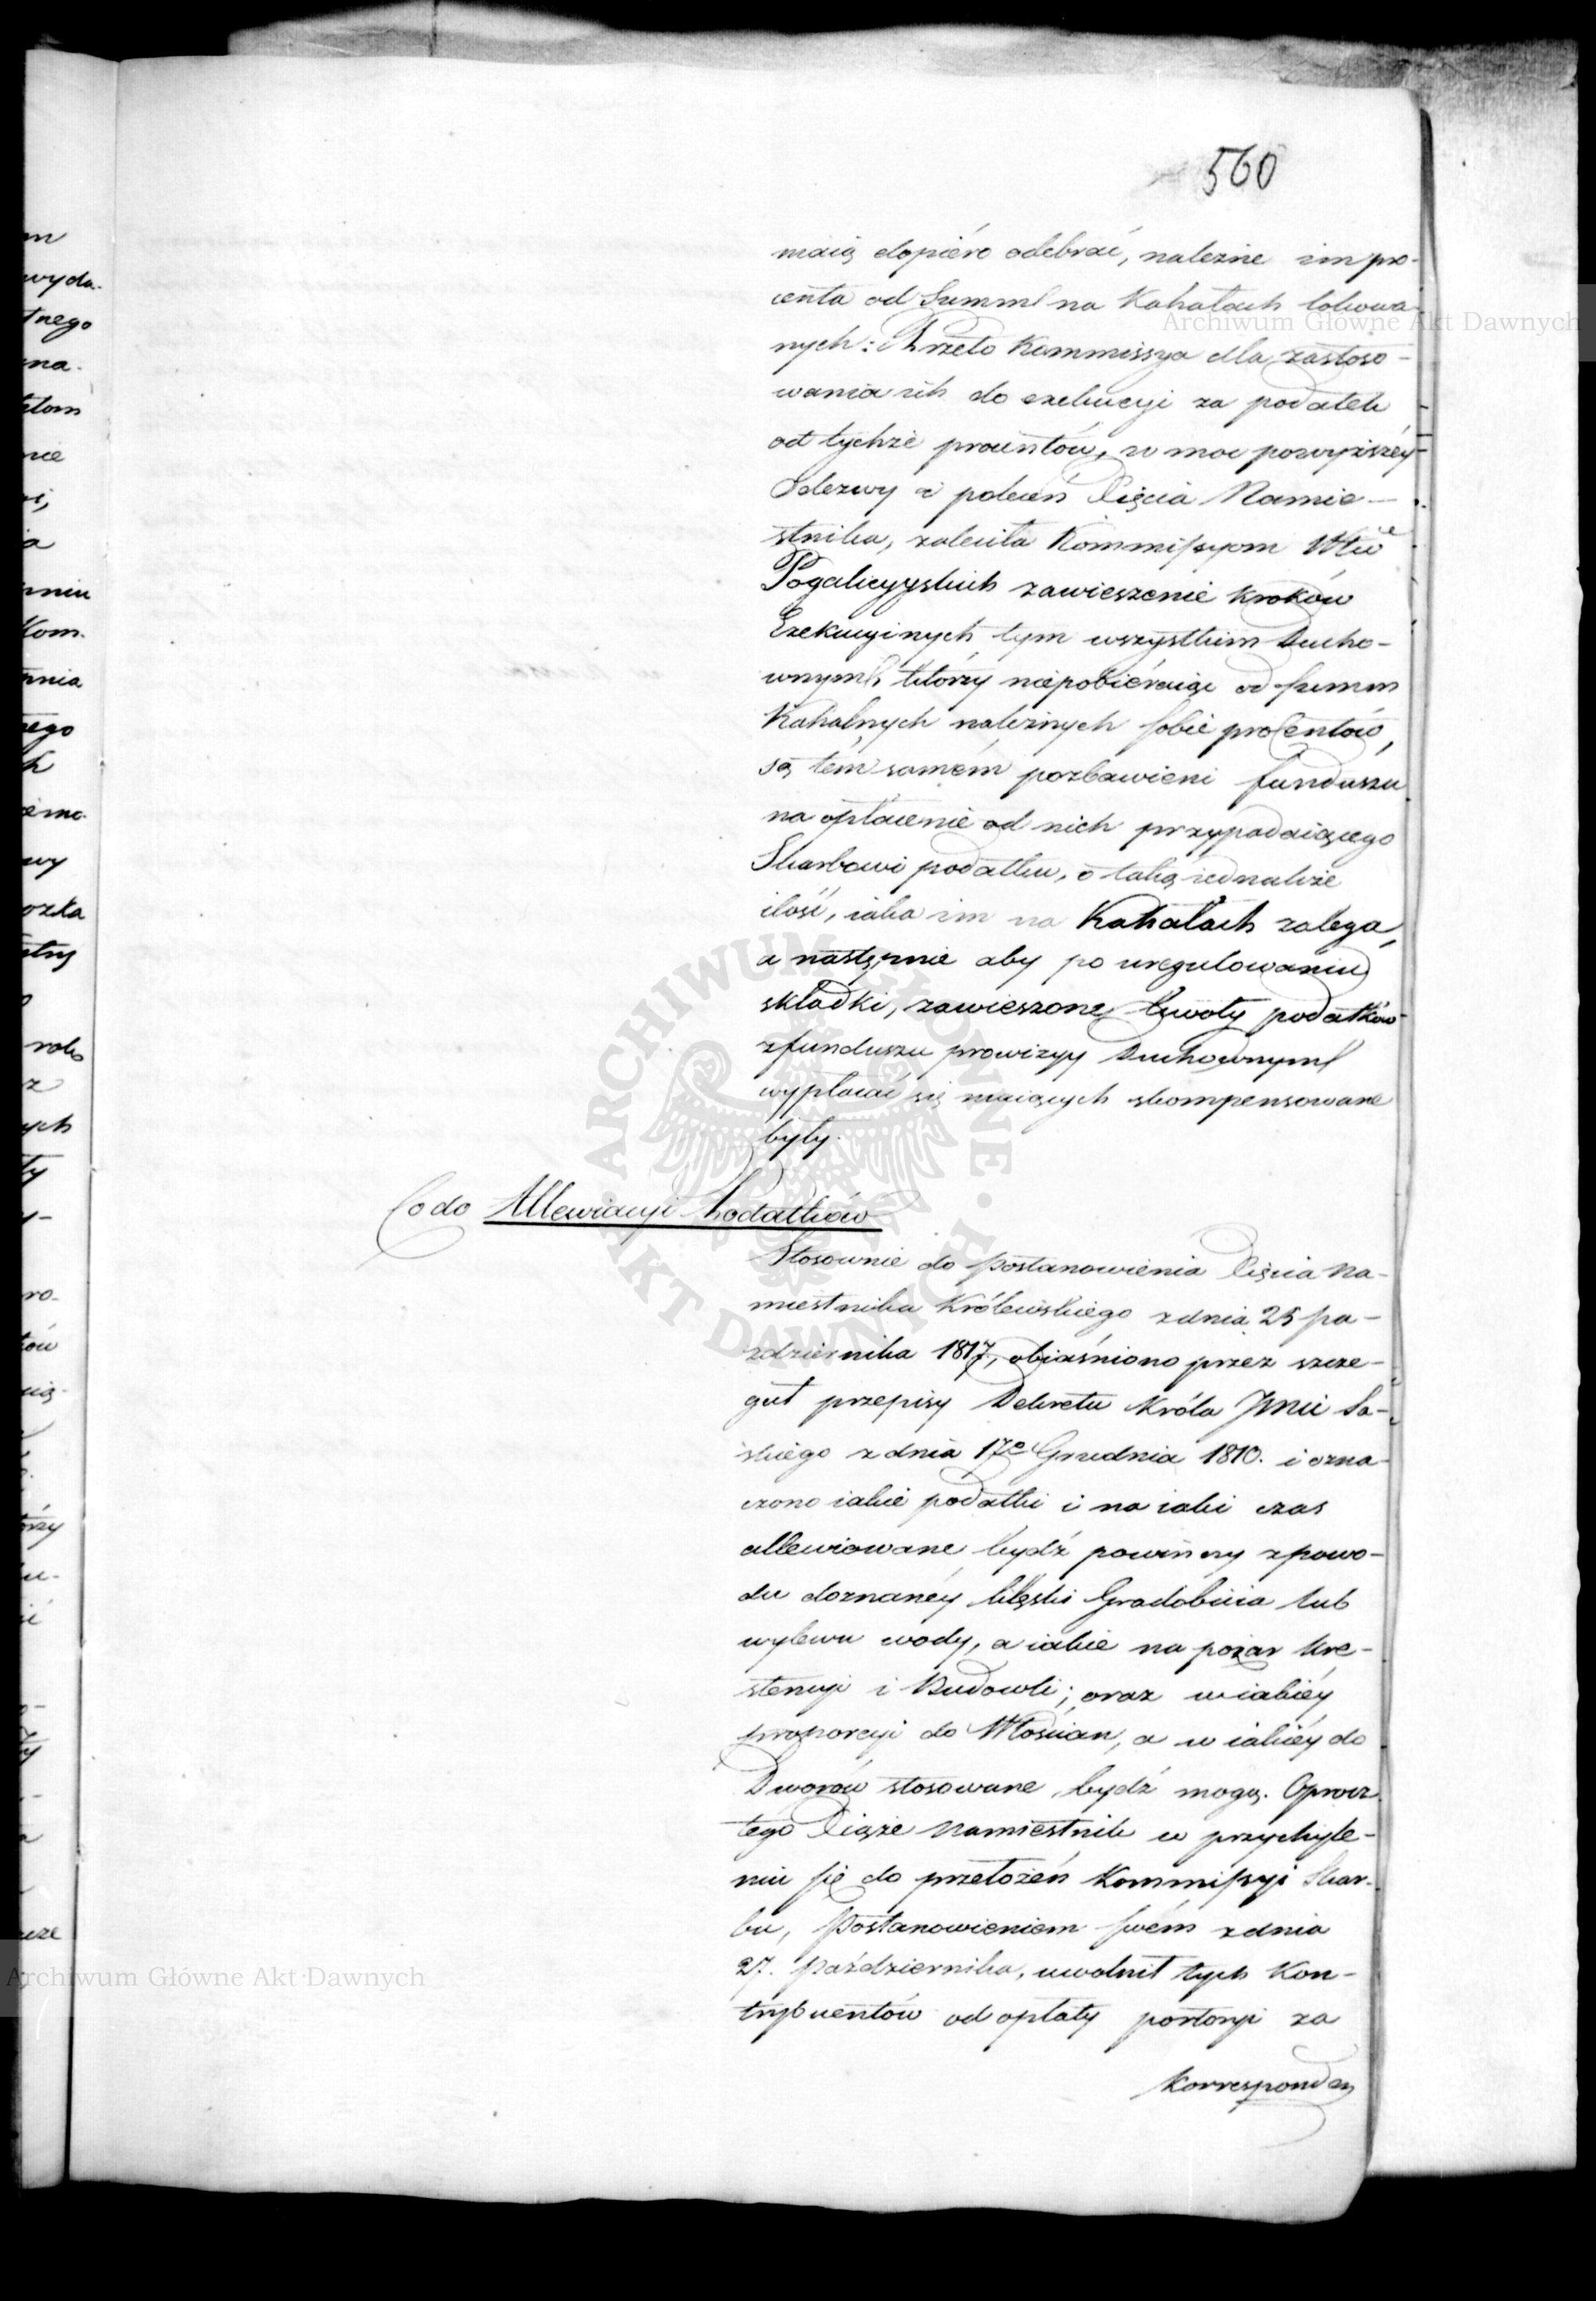 560
maią dopiéro odebrać, należne im pro-
centa od Summ na Kahałach lokowa-
nych: Przeto Kommissya dla zastoso-
wania ich do exekucyi za podatek
od tychże procentów, w moc powyższéy
Odezwy i poleceń Xięcia Namie-
stnika, zaleciła Kommissyom Wtw
Pogalicyyskich zawieszenie kroków
Exekucyinych tym wszystkim Ducho-
wnym, którzy niepobiéraiąc od summ
Kahalnych należnych sobie procentów,
są tém samém pozbawieni funduszu
na opłacenie od nich przypadaiącego
Skarbowi podatku, o taką iednakże
ilość, iaka im na Kahałach zalega,
a następnie aby po uregulowaniu
składki, zawieszone kwoty podatków
z funduszu prowizyy Duchownym
wypłacać się maiących skompensowane
były.
Co do Allewiacyi Podatków
Stosownie do postanowienia Xięcia Na-
miestnika Królewskiego z dnia 25 pa-
zdziernika 1817, obiaśniono przez szcze-
guł przepisy Dekretu Króla JMci Sa-
skiego z dnia 17o Grudnia 1810. i ozna-
czono iakie podatki i na iaki czas
allewiowane bydź powinny z powo-
du doznanéy klęski Gradobicia lub
wylewu wody, a iakie na pożar Kre-
stencyi i Budowli; oraz w iakiéy
proporcyi do Włościan, a w iakiéy do
Dworów stosowane bydź mogą. Oprocz
tego Xiąże Namiestnik w przychyle-
niu się do przełożeń Kommissyi Skar-
bu, Postanowieniem swém z dnia
27. Października, uwolnił tych Kon-
trybuentów od opłaty portoryi za
Korrespondem
Archiwum Główne Akt Dawnych
Archiwum Główne Akt Dawnych
ARCHIWUM GŁÓWNE AKT DAWNYCH